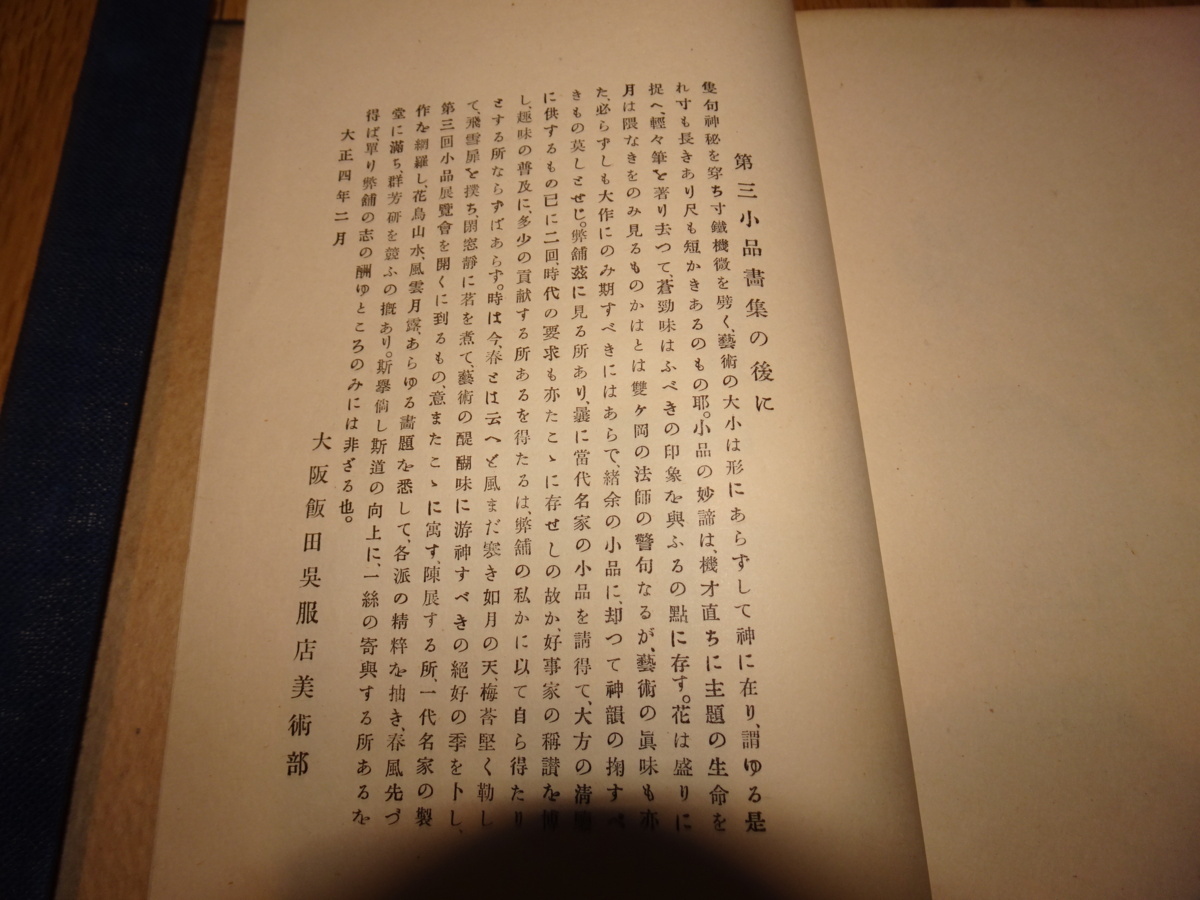 第三小品畫集の後に
隻句神秘を穿ち寸鐵機微を劈く、藝術の大小は形にあらずして神に在り、謂ゆる是
れ寸も長きあり尺も短かきあるのもの耶。小品の妙諦は、機才直ちに主題の生命を
捉へ、輕々筆を著り去つて、蒼勁味はふべきの印象を與ふるの點に存す。花は盛りに
月は隈なきをのみ見るものかはとは雙ヶ岡の法師の警句なるが、藝術の眞味も亦
た、必らずしも大作にのみ期すべきにはあらで、緒余の小品に、却つて神韻の掬すべ
きもの莫しとせじ。弊舖茲に見る所あり、曩に當代名家の小品を請得て、大方の清
に供するもの已に二回、時代の要求も亦たこゝに存せしの故か、好事家の稱讃を博
し、趣味の普及に、多少の貢献する所あるを得たるは、弊舖の私かに以て自ら得たり
とする所ならずばあらず。時は今、春とは云へど風まだ寒き如月の天、梅荅堅く勒し
て、飛雪扉を撲ち、閑窓靜に茗を煮て、藝術の醍醐味に游神すべきの絕好の季を卜し、
第三回小品展覽會を開くに到るもの、意またこゝに寓す、陳展する所、一代名家の製
作を網羅し、花鳥山水、風雲月露、あらゆる畵題を悉して、各派の精粹を抽き、春風先づ
堂に滿ち、群芳硏を競ふの概あり。斯擧倘し斯道の向上に、一絲の寄與する所あるを
得ば、單り弊舖の志の酬ゆところのみには非ざる也。
大正四年二月
大阪飯田吳服店美術部